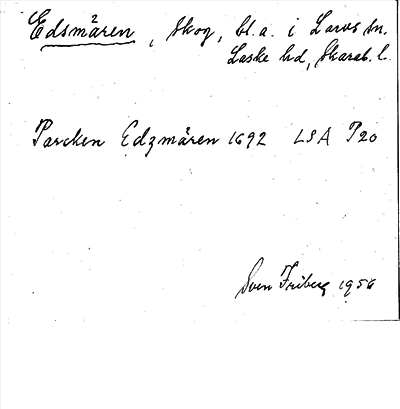 Edsmären, skog, bl. a. i Larvs sn.
Laske hd, Skarab. l.
Parcken Edzmären 1692 LSA P20
Sven Friberg 1956